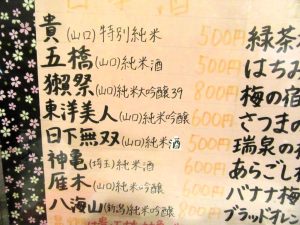 貴(山口)特別純米 500円
五橋(山口)純米酒 500円
獺祭(山口)純米大吟醸39 800円
東洋美人(山口)純米吟醸 600円
日下無双(山口)純米酒 500円
神亀(埼玉)純米酒 600円
雁木(山口)純米吟醸 600円
八海山(新潟)純米吟醸 800円
緑茶
はちみ
梅の宿
さつまの
瑞泉の
あらごし
バナナ梅
ブラッドオレン